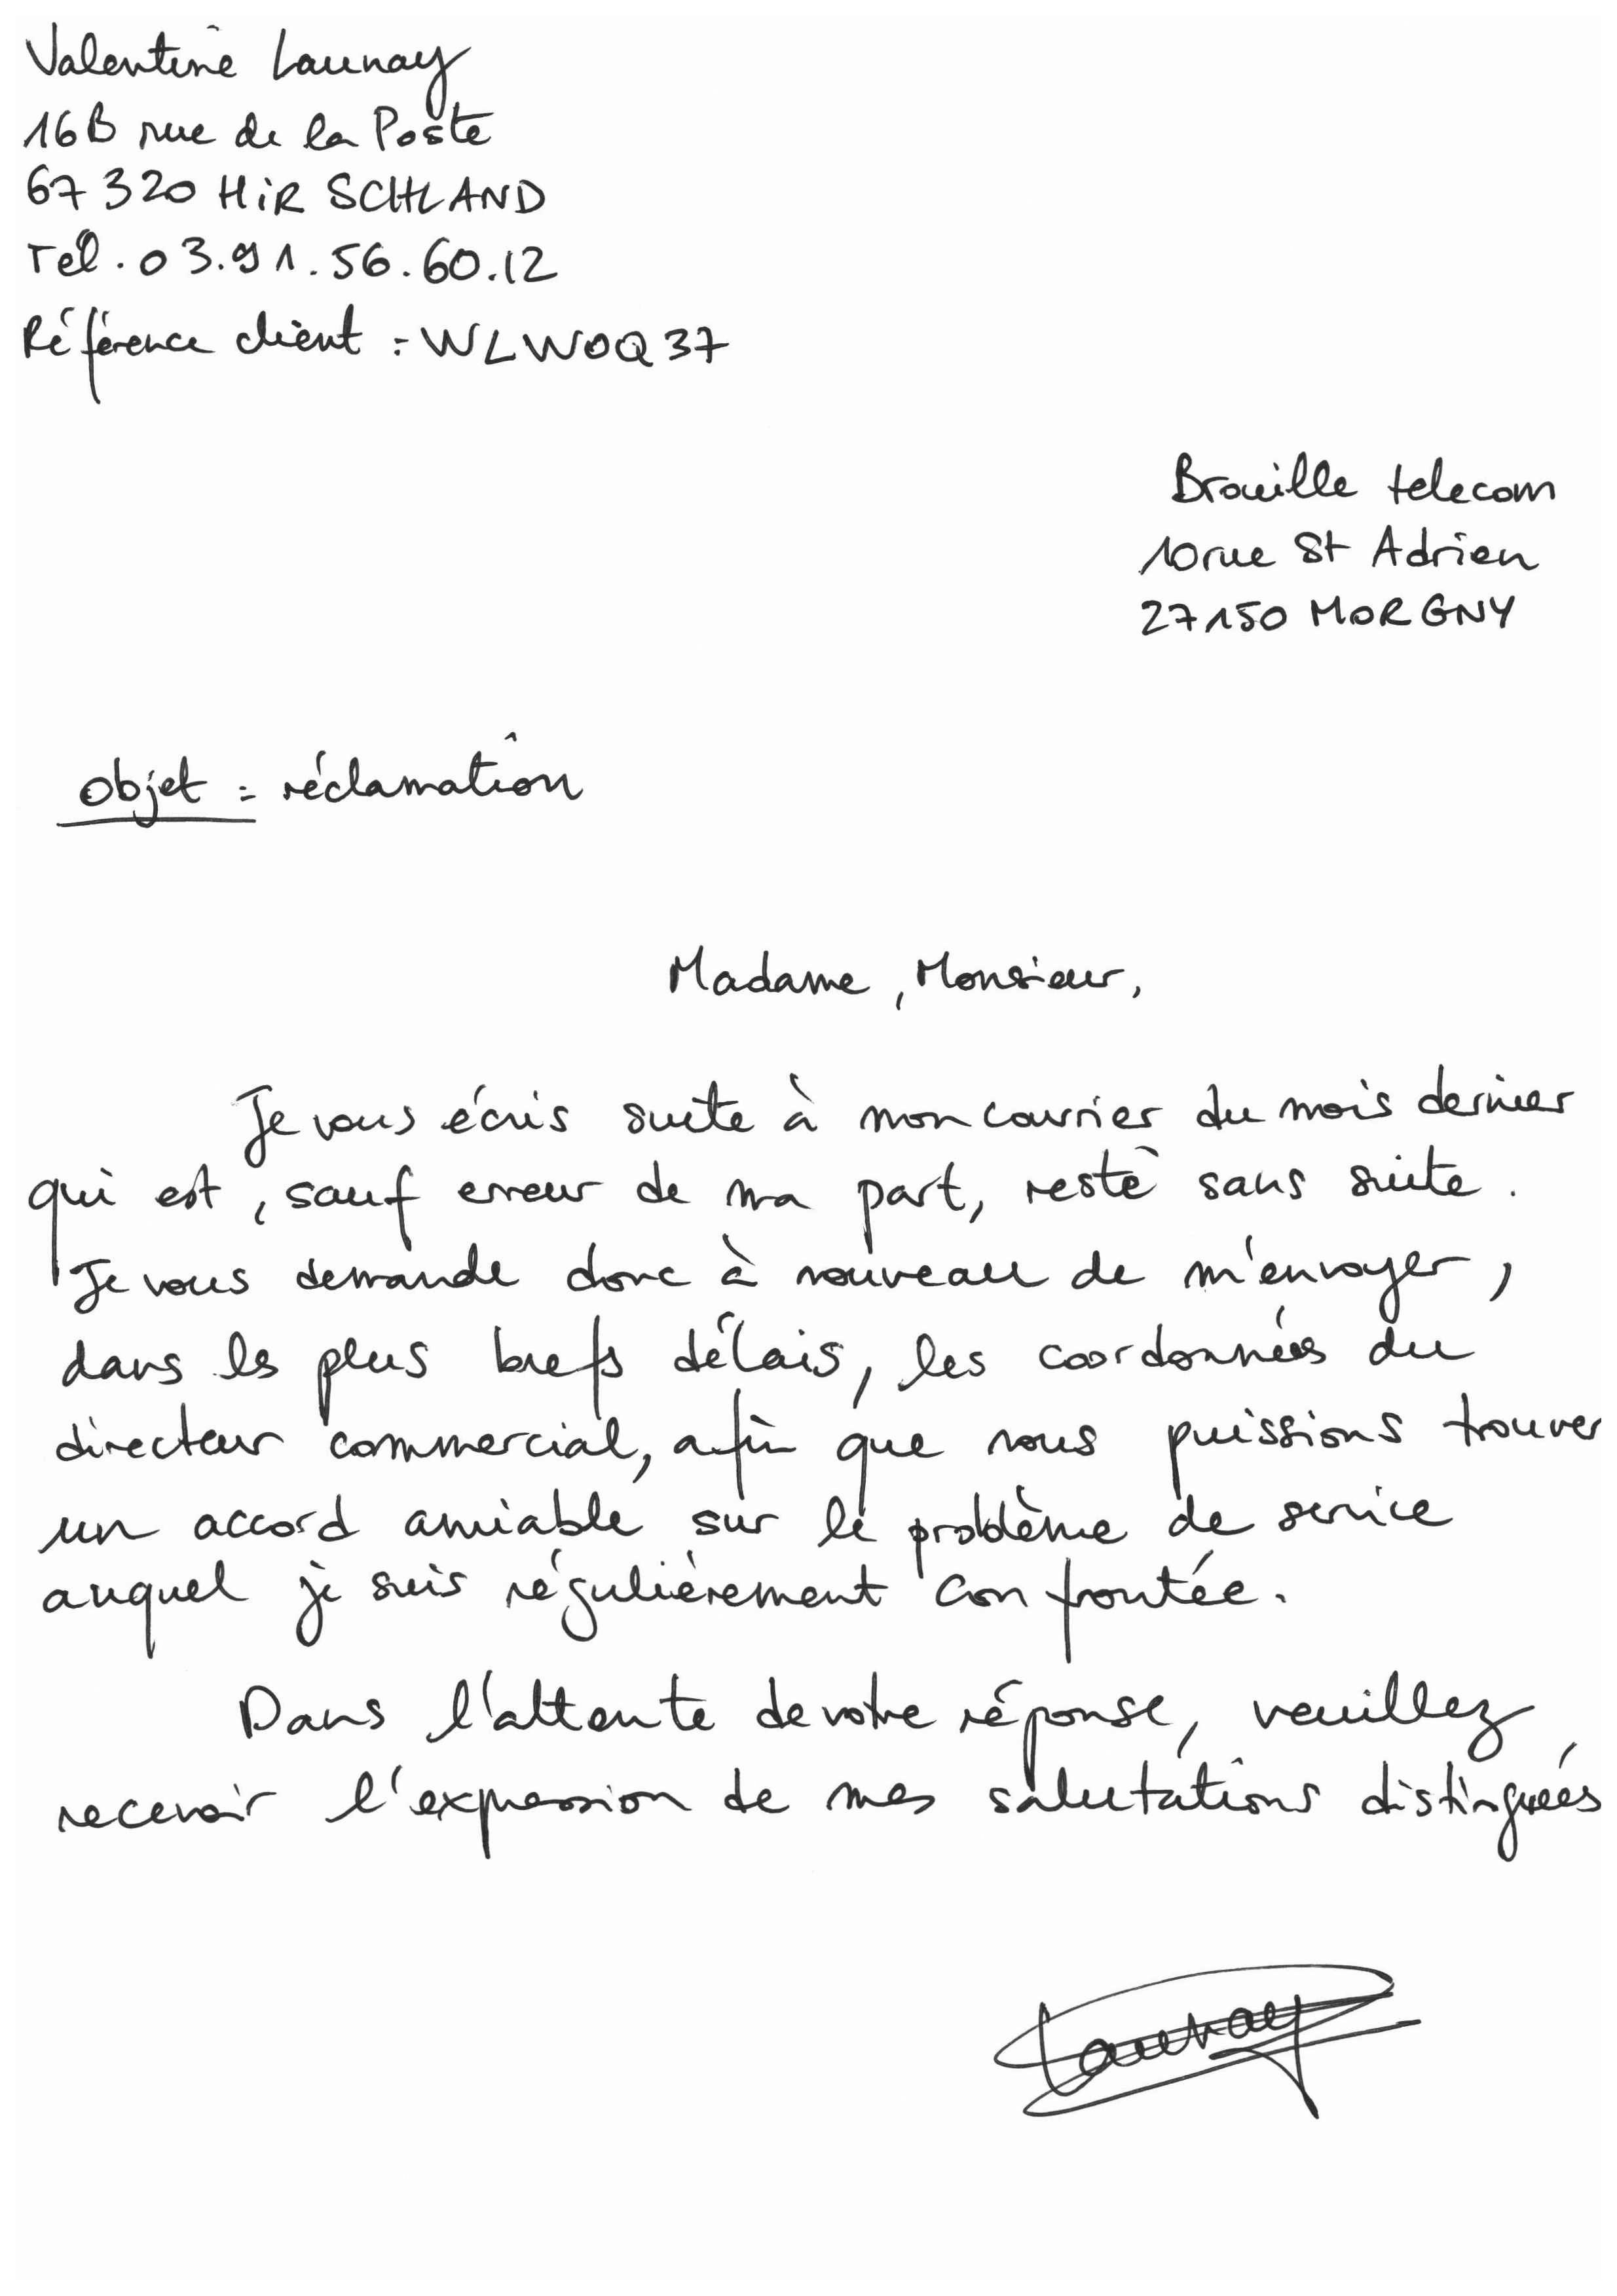 Valentine Launay
16B rue de la Poste
67320 HIRSCHLAND
Tel. 03.91.56.60.12
Référence client : WLWOQ37
Brouille telecom
10 rue St Adrien
27150 MORGNY
Objet : réclamation
Madame, Monsieur,
Je vous écris suite à mon courrier du mois dernier
qui est, sauf erreur de ma part, resté sans suite.
Je vous demande donc à nouveau de m'envoyer,
dans les plus brefs délais, les coordonnées du
directeur commercial, afin que nous puissions trouver
un accord amiable sur le problème de service
auquel je suis régulièrement confrontée.
Dans l'attente de votre réponse, veuillez
recevoir l'expression de mes salutations distinguées
Launay